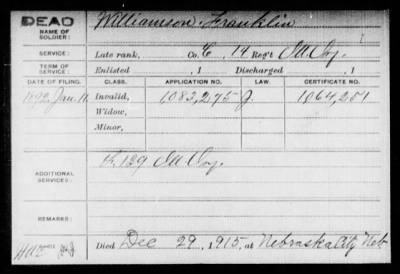 DEAD
NAME OF SOLDIER: Williamson, Franklin
SERVICE: Late rank, Co. C, 14 Reg't
TERM OF SERVICE: Enlisted , 1 Discharged , 1
DATE OF FILING. CLASS. APPLICATION NO. LAW. CERTIFICATE NO.
1892, Jan. 11 Invalid, 1083,275 J. 1064,251
Widow,
Minor,
ADDITIONAL SERVICES: 139
REMARKS:
Died Dec 29, 1915, at Nebraska City Neb